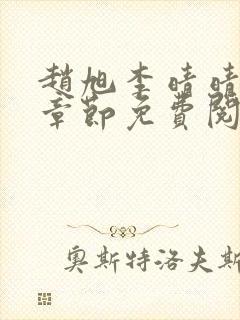 趙旭李晴晴
章節免費閱
奧斯特洛夫斯